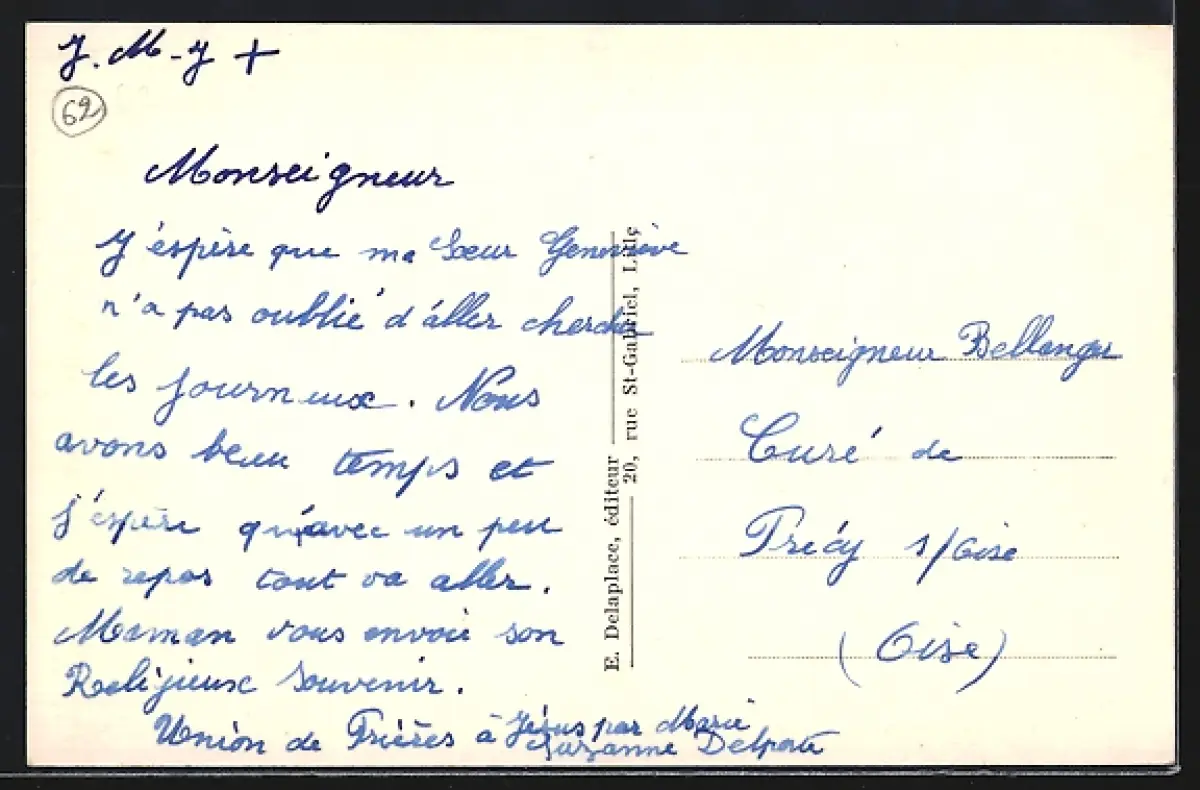 J. M-J +
62
Monseigneur
J'éspère que ma Sœur Geneviève
n'a pas oublié d'áller chercher
les journeux. Nous
avons beau temps et
j'éspère qu'avec un peu
de repos tout va aller.
Maman vous envoie son
Religieux Souvenir.
Union de Prières à Jésus par Marie
Suzanne Delporte
E. Delaplace, éditeur
20, rue St-Gabriel, Lille
Monseigneur Bellanger
Curé de
Précy s/Oise
(Oise)